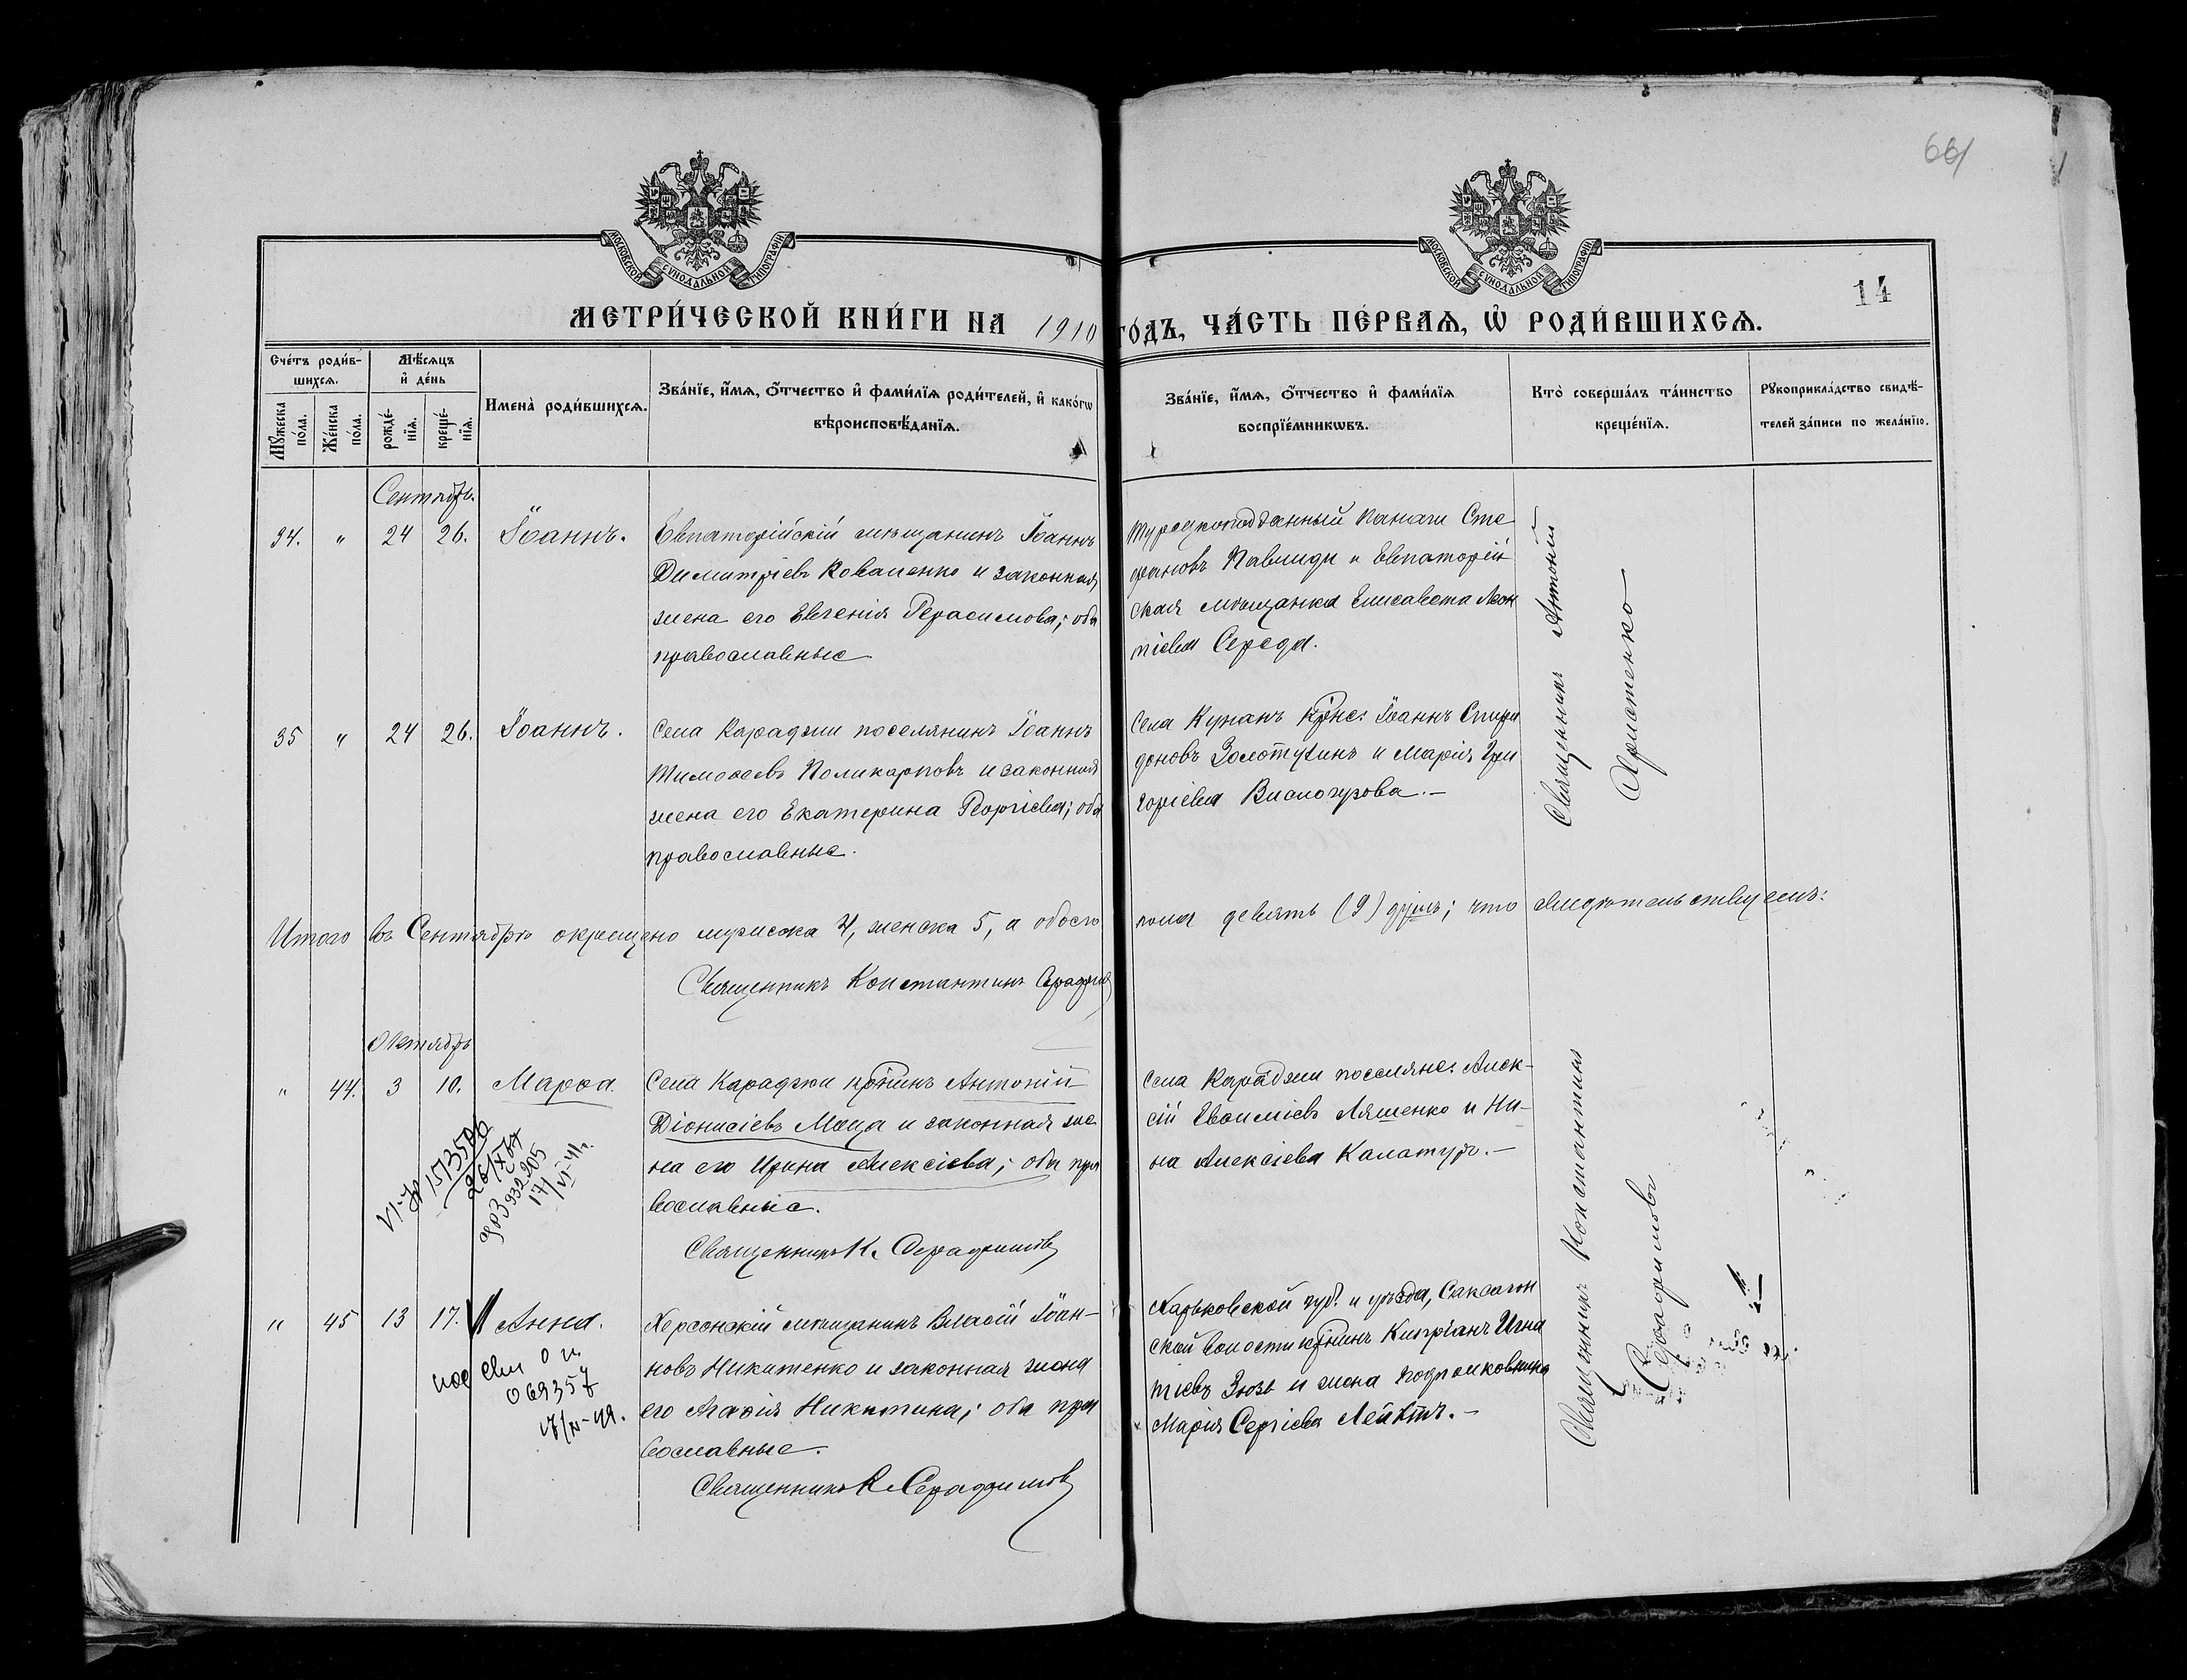 661
МОСКОВСКОЙ СѴНОДАЛЬНОЙ ТИПОГРАФІИ
МОСКОВСКОЙ СѴНОДАЛЬНОЙ ТИПОГРАФІИ
14
МЕТРИ́ЧЕСКОЙ КНИ́ГИ НА 1910 ГО́ДЪ, ЧА́СТЬ ПЕ́РВАѦ, Ѡ҆ РОДИ́ВШИХСѦ.
Сче́тъ роди́в-
шихсѧ.
Мꙋ́жеска по́ла.
Же́нска по́ла.
Мѣ́сѧцъ
и҆ де́нь
рожде́-
нїѧ.
креще́-
нїѧ.
Имена̀ роди́вшихсѧ.
Зва́нїе, и҆́мѧ, ѻ҆́тчество и҆ фами́лїѧ роди́телей, и҆ како́гѡ
вѣроисповѣ́данїѧ.
Зва́нїе, и҆́мѧ, ѻ҆́тчество и҆ фами́лїѧ
воспрїе́мникѡвъ.
Кто̀ соверша́лъ та́инство
креще́нїѧ.
Рꙋкоприкла́дство свидѣ́-
телей за́писи по жела́нїю.
Сентябрь.
34. " 24 26. Іоаннъ.
Евпаторійскій мѣщанинъ Іоаннъ
Димитріевъ Коваленко и законная
жена его Евгенія Герасимова; оба
православные
Турецкоподданный Панаги Сте
фановъ Павлиди и Евпаторій
ская мѣщанка Елисавета Леон
тіева Середа.
35 " 24 26. Іоаннъ.
Села Караджи поселянинъ Іоаннъ
Тимоѳеевъ Поликарповъ и законная
жена его Екатерина Георгіева; оба
православные.
Села Кунанъ крне: Іоаннъ Спири
доновъ Золотухинъ и Марія Гри
горіева Вислогузова.—
Священникъ Антоній
Аристенко
Итого въ Сентябрѣ окрещено мужеска 4, женска 5, а обоего пола девять (9) душъ; что свидѣтельствуемъ:
Священникъ Константинъ Серафимовъ
Октябрь
" 44. 3 10. Марѳа.
VI-ЯР 1573506
903932205
17/VI-41г.
Села Караджи крнинъ Антоній
Діонисіевъ Маца и законная же
на его Ирина Алексіева; оба пра
вославные.
Священникъ К. Серафимовъ
Села Караджи поселяне: Алек-
сій Евѳиміевъ Ляшенко и Ни-
на Алексіева Калатуръ.—
" 45 13 17. Анна.
069357
Херсонскій мѣщанинъ Власій Іоан-
новъ Никитенко и законная жена
его Агаѳія Никитина; оба пра
вославные.
Священникъ К. Серафимовъ
Харьковской губ. и уѣзда,
ской волости крнинъ Кипріанъ Игна
тіевъ Зюзь и жена подполковника
Марія Сергіева
Священникъ Константинъ
Серафимовъ